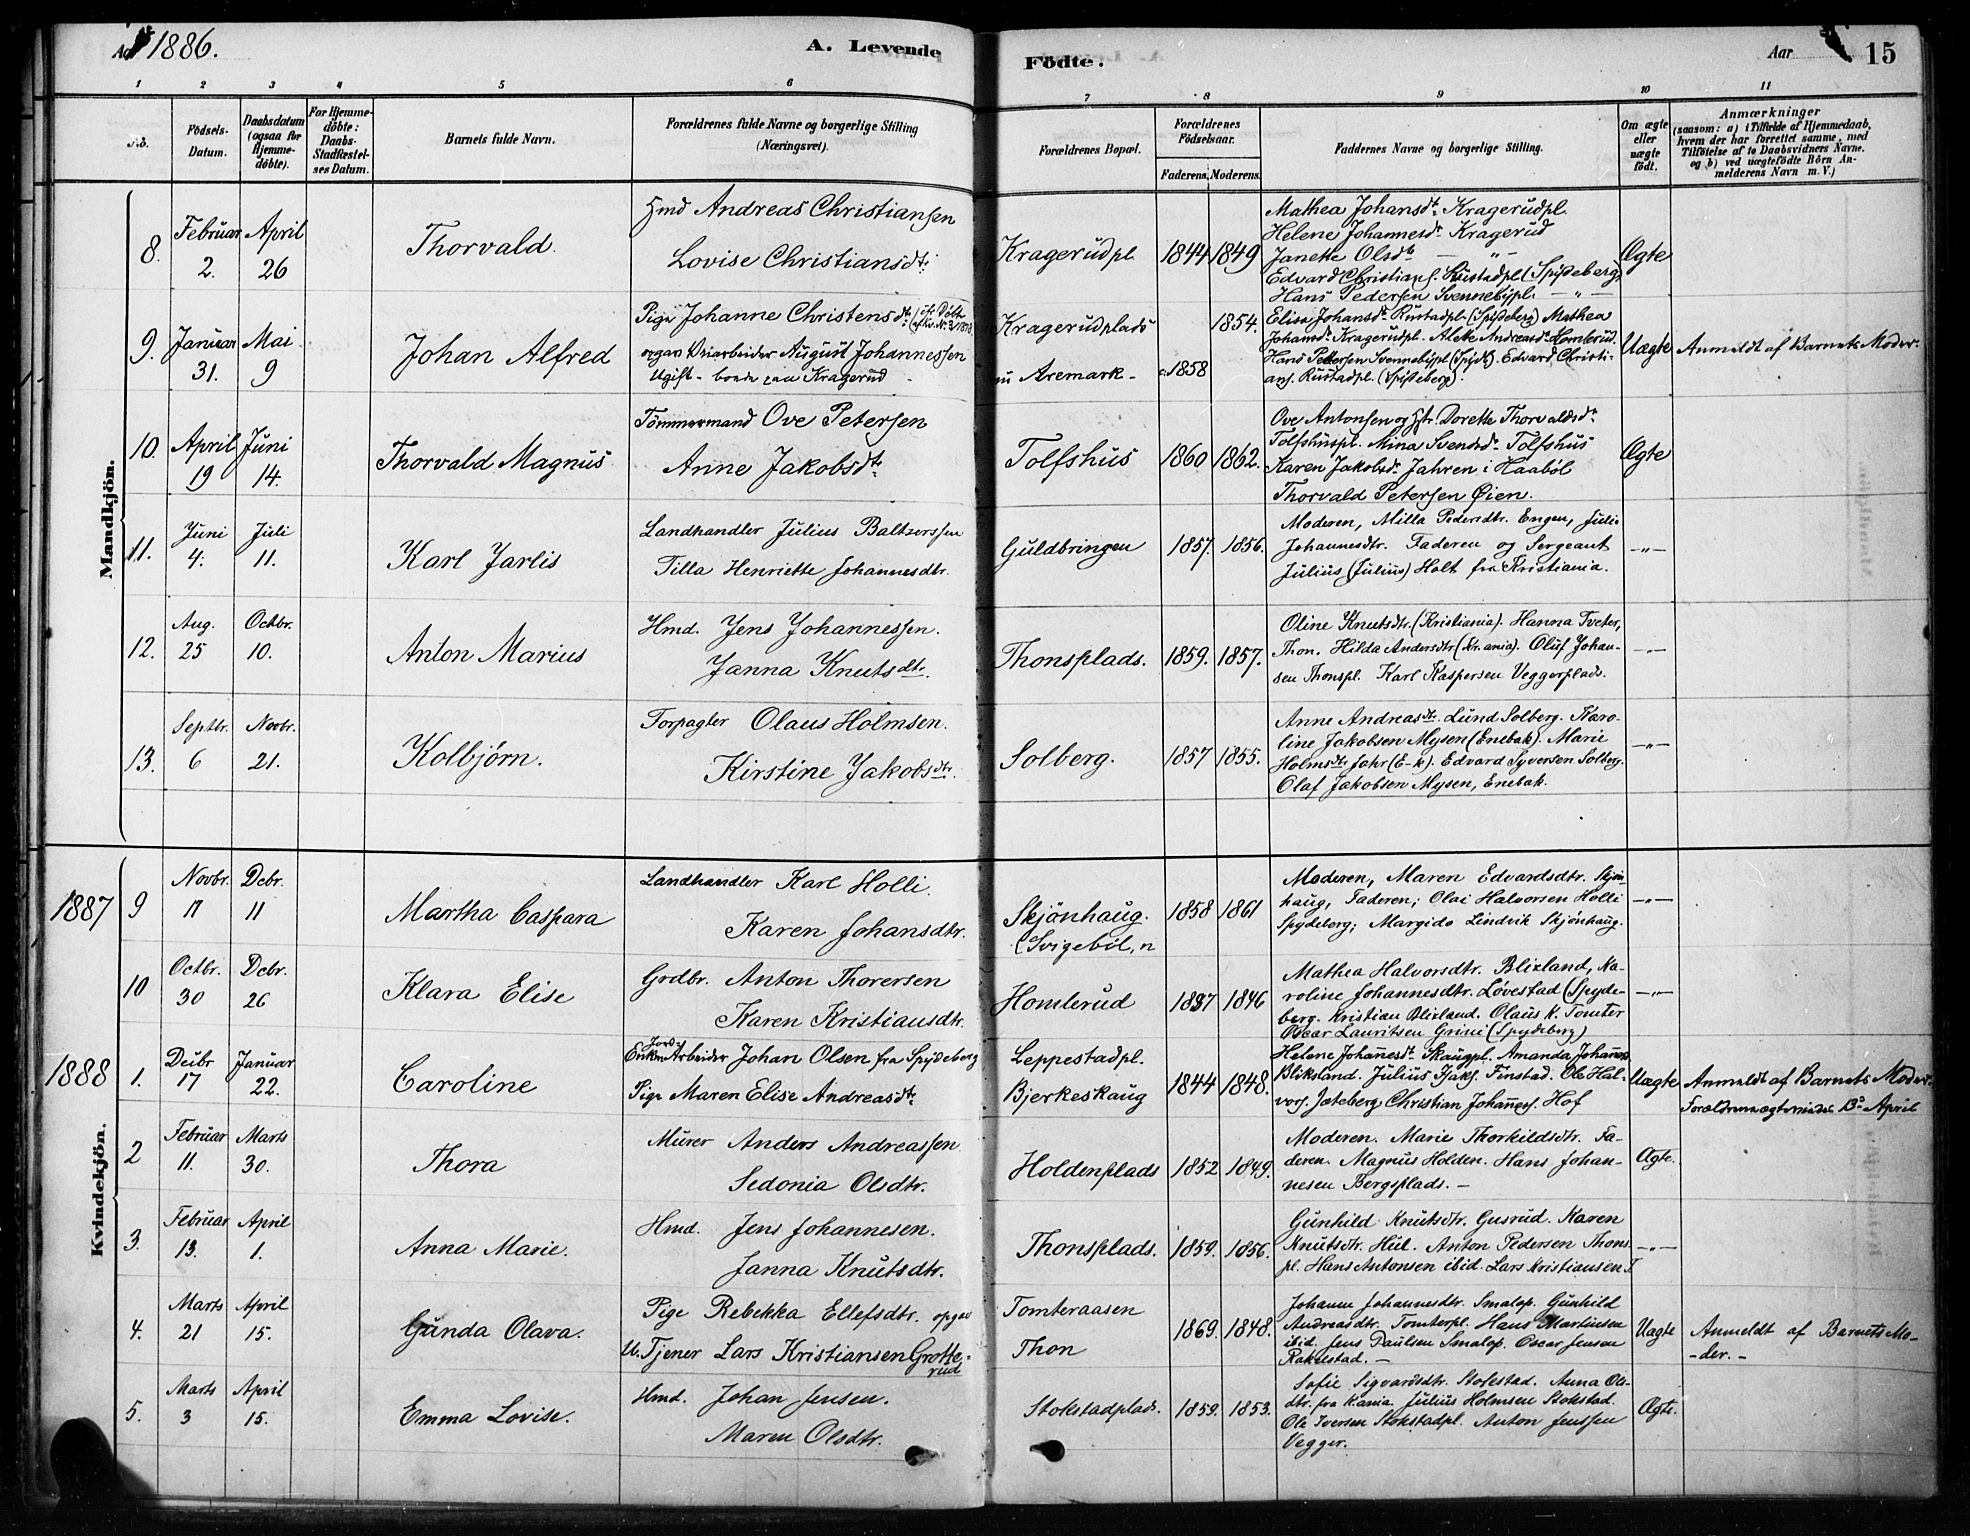 Aar 1886.
A. Levende
Födte.
Aar
15
1 2 3 4 5 6 7 8 9 10 11
No.
Födsels-
Datum.
Daabsdatum
(ogsaa for
Hjemme-
döbte).
For Hjemme-
döbte:
Daabs-
Stadfæstel-
ses Datum.
Barnets fulde Navn.
Forældrenes fulde Navne og borgerlige Stilling
(Næringsvei).
Forældrenes Bopæl.
Forældrenes
Födselsaar.
Faderens. Moderens.
Faddernes Navne og borgerlige Stilling.
Om ægte
eller
uægte
födt.
Anmærkninger
(saasom: a) i Tilfælde af Hjemmedaab,
hvem der har forrettet samme, med
Tilföielse af to Daabsvidners Navne.
og b) ved uægtefödte Börn An-
melderens Navn m. V.)
Mandkjön.
8.
Februar
2.
April
26
Thorvald.
Hmd Andreas Christiansen
Lovise Christiansdt.
Kragerudpl.
1844 1849
Mathea Johansdt. Kragerudpl.
Helene Johannesdt. Kragerud
Janette Olsdt. — " —
Edvard Christians. Rustadpl (Spydeberg)
Hans Pedersen Svennebypl. — " —
Ægte
9.
Januar
31.
Mai
9
Johan Alfred
Pige Johanne Christensdt.
opgav Veiarbeider August Johannessen
Ugift - boende paa Kragerud
Kragerudplads
nu Aremark -
1854.
c. 1858
Elise Johansdt. Rustadpl. (Spydeberg) Mathea
Johansdt. Kragerudpl. Alette Andreasdt. Homlerud.
Hans Pedersen Svennebypl (Spydb). Edvard Christi-
ans. Rustadpl. (Spydeberg).
Uægte
Anmeldt af Barnets Moder.
10.
April
19
Juni
14.
Thorvald Magnus
Tömmermand Ove Petersen
Anne Jakobsdt.
Tolfshus
1860 1862.
Ove Antonsen og Hstr. Dorette Thorvaldsdt.
Tolfshuspl. Mina Svendsdt. Tolfshus
Karen Jakobsdt. Jahren i Haaböl
Thorvald Petersen Øien.
Ægte
11.
Juni
4.
Juli
11.
Karl Jarlis
Landhandler Julius Baltzerssen
Tilla Henriette Johannesdtr.
Guldbringen
1857. 1856.
Moderen, Milla Pedersdtr. Engen, Julie
Johannesdtr. Faderen og Sergeant
Julius (Julius) Holt fra Kristiania.
— " —
12.
Aug.
25
Octbr.
10.
Anton Marius
Hmd. Jens Johannessen.
Janna Knutsdtr.
Thonsplads.
1859. 1857.
Oline Knutsdtr. (Kristiania). Hanna Tveter,
Thon. Hilda Andersdtr (Kr.ania). Oluf Johan-
sen Thonspl. Karl Kaspersen Veggerplads.
— " —
13.
Septbr.
6
Novbr.
21.
Kolbjørn.
Forpagter Olaus Holmsen.
Kirstine Jakobsdtr.
Solberg.
1857 1855.
Anne Andreasdtr. Lund Solberg. Karo-
line Jakobsen Mysen (Enebak). Marie
Holmsdtr Jahr (E-k). Edvard Syversen Solberg.
Olaf Jakobsen Mysen, Enebak.
— " —
Kvindekjön.
1887
9
Novbr.
17
Dcbr.
11
Martha Caspara
Landhandler Karl Holli.
Karen Johansdtr.
Skjönhaug.
(Svigeböl, n
1858 1861
Moderen, Maren Edvardsdtr. Skjön-
haug, Faderen; Olai Halvorsen Holli
Spydeberg; Margido Lindvik Skjönhaug.
— " —
10
Octbr.
30
Dcbr.
26
Klara Elise
Grdbr. Anton Thoresen
Karen Kristiansdtr.
Homlerud
1837 1846
Mathea Halvorsdtr. Blixland, Ka-
roline Johannesdtr. Løvestad (Spyde-
berg. Kristian Blixland. Olaus K. Tomter
Oscar Lauritsen Grini (Spydeberg)
— " —
1888
1.
Dcibr
17
Januar
22.
Caroline
Enkem. Jord-
Arbeider Johan Olsen fra Spydeberg
Pige Maren Elise Andreasdt.
Leppestadpl.
Bjerkeskaug
1844 1848.
Helene Johannesdt. Skaugpl. Amanda Johannesd.
Bliksland. Julius Isaks. Finstad. Ole Hal-
vors. Jæteberg Christian Johannes. Hof
Uægte
Anmeldt af Barnets Moder.
Forældrene ægteviedes 13de April
2
Februar
11.
Marts
30.
Thora
Murer Anders Andreassen
Sedonia Olsdtr.
Holdenplads
1852 1849.
Moderen. Marie Thorkildsdtr. Fa-
deren. Magnus Holden. Hans Johan-
nesen Bergsplads. —
Ægte.
3.
Februar
13.
April
1.
Anna Marie.
Hmd. Jens Johannesen.
Janna Knutsdtr.
Thonsplads.
1859. 1856.
Gunhild Knutsdtr. Gusrud. Karen
Knutsdtr. Huil. Anton Pedersen Thons-
pl. Hans Antonsen ibid. Lars Kristiansen T
— " —
4.
Marts
21
April
15.
Gunda Olava.
Pige Rebekka Ellefsdtr. opgav
U. Tjener Lars Kristiansen Grotte-
rud
Tomteraasen
Thon
1869. 1848.
Johanne Johannesdtr. Smalop. Gunhild
Andreasdtr. Tomterpl. Hans Martinsen
ibid. Jens Paulsen Smalop. Oscar Jensen
Rakkestad. —
Uægte
Anmeldt af Barnets Mo-
-der. -
5.
Marts
3
April
15.
Emma Lovise.
Hmd. Johan Jensen.
Maren Olsdtr.
Stokstadplads.
1859. 1853.
Sofie Sigvardsdtr. Stokstad. Anna Ols-
dtr. fra Kania. Julius Holmsen Stokstad.
Ole Iversen Stokstadpl. Anton Jenssen
Vegger.
Ægte.